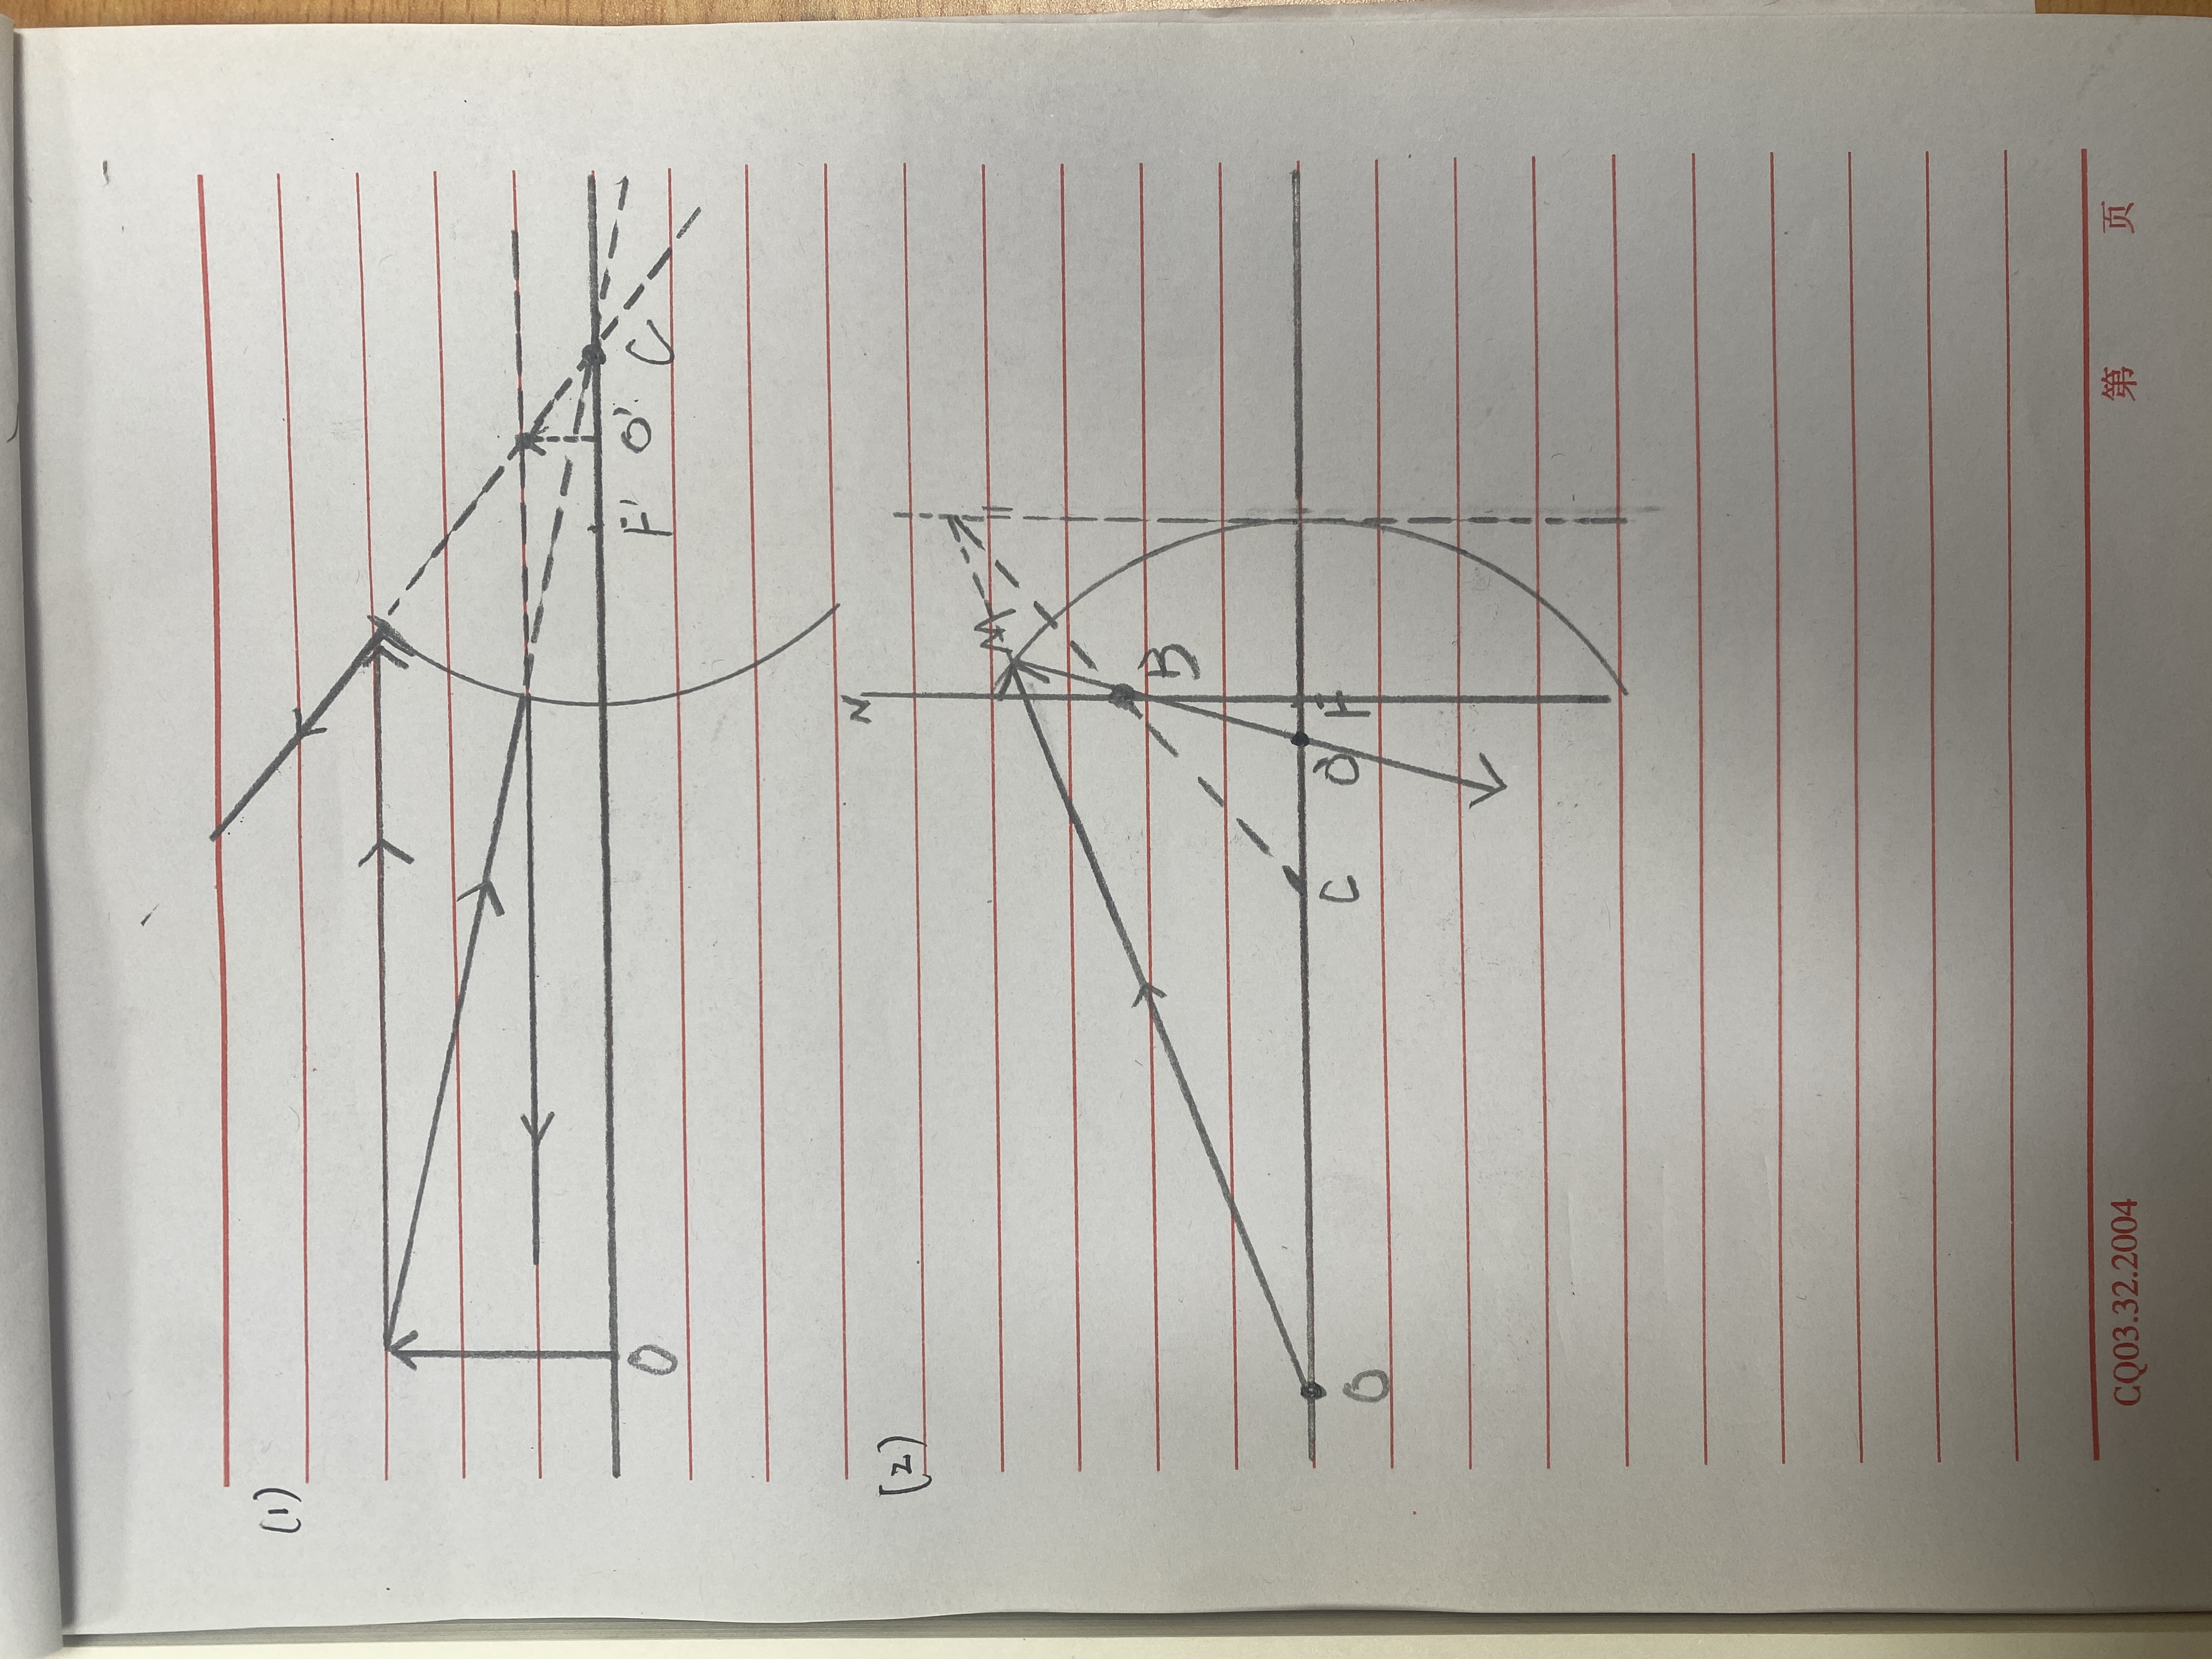 (1)
O F' O' C
(2)
N
M
B
O C O' F
CQ03.32.2004 第 页